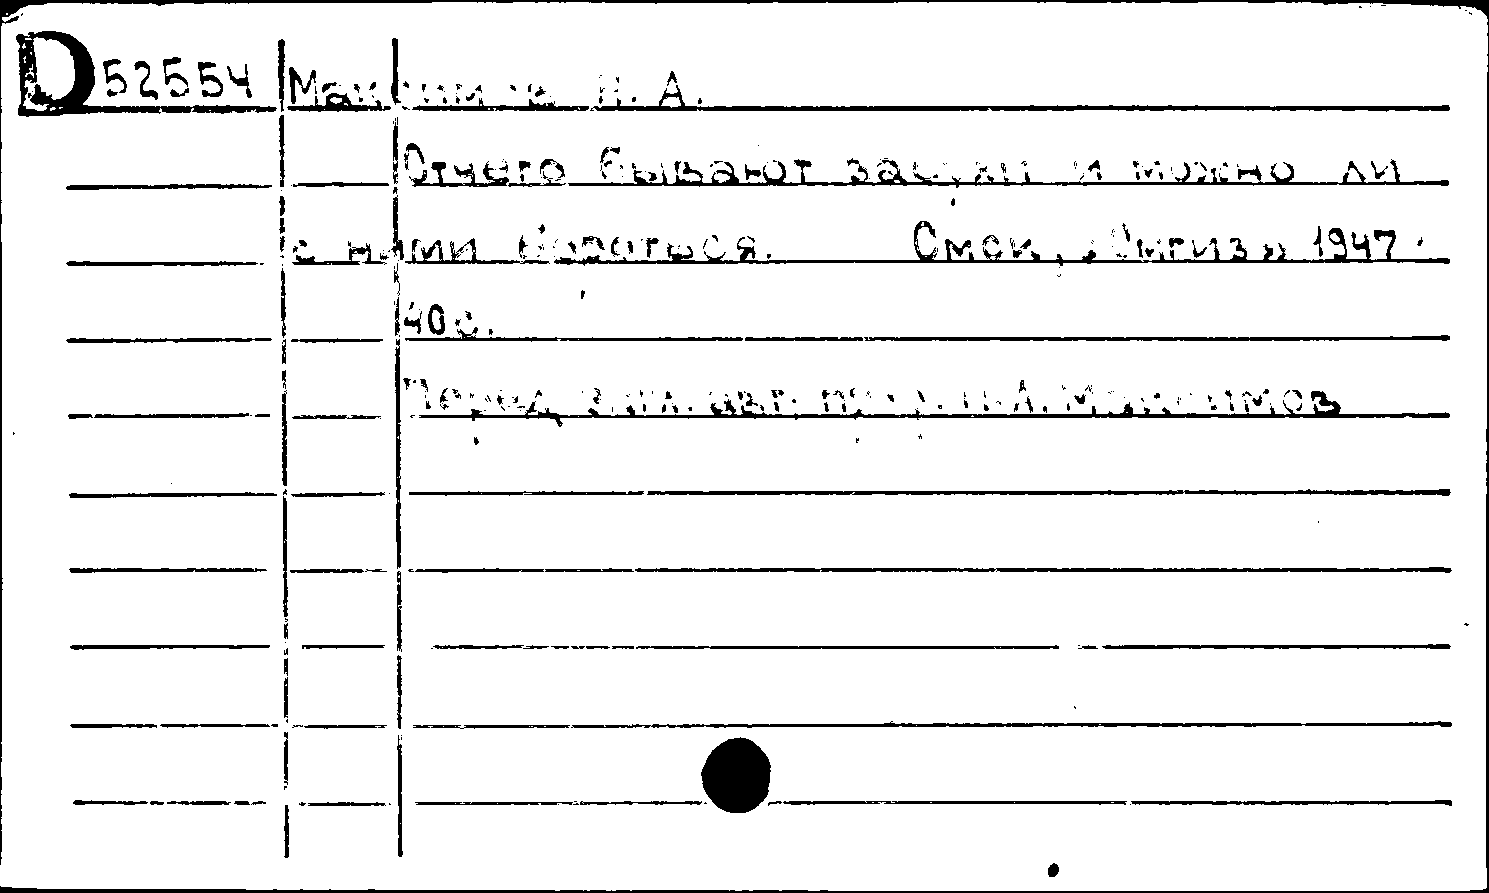 D 52554 Максимов Н. А.
Отчего бывают засухи и можно ли
с ними бороться. Смск, «Смгиз» 1947.
40 с.
Перед загл. авт: проф. Н. А. Максимов